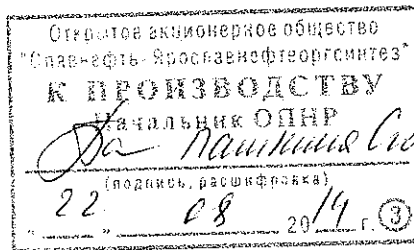 Открытое акционерное общество
"Славнефть-Ярославнефтеоргсинтез"
К ПРОИЗВОДСТВУ
Начальник ОПНР
(подпись, расшифровка)
"22" 08 2014 г. 3